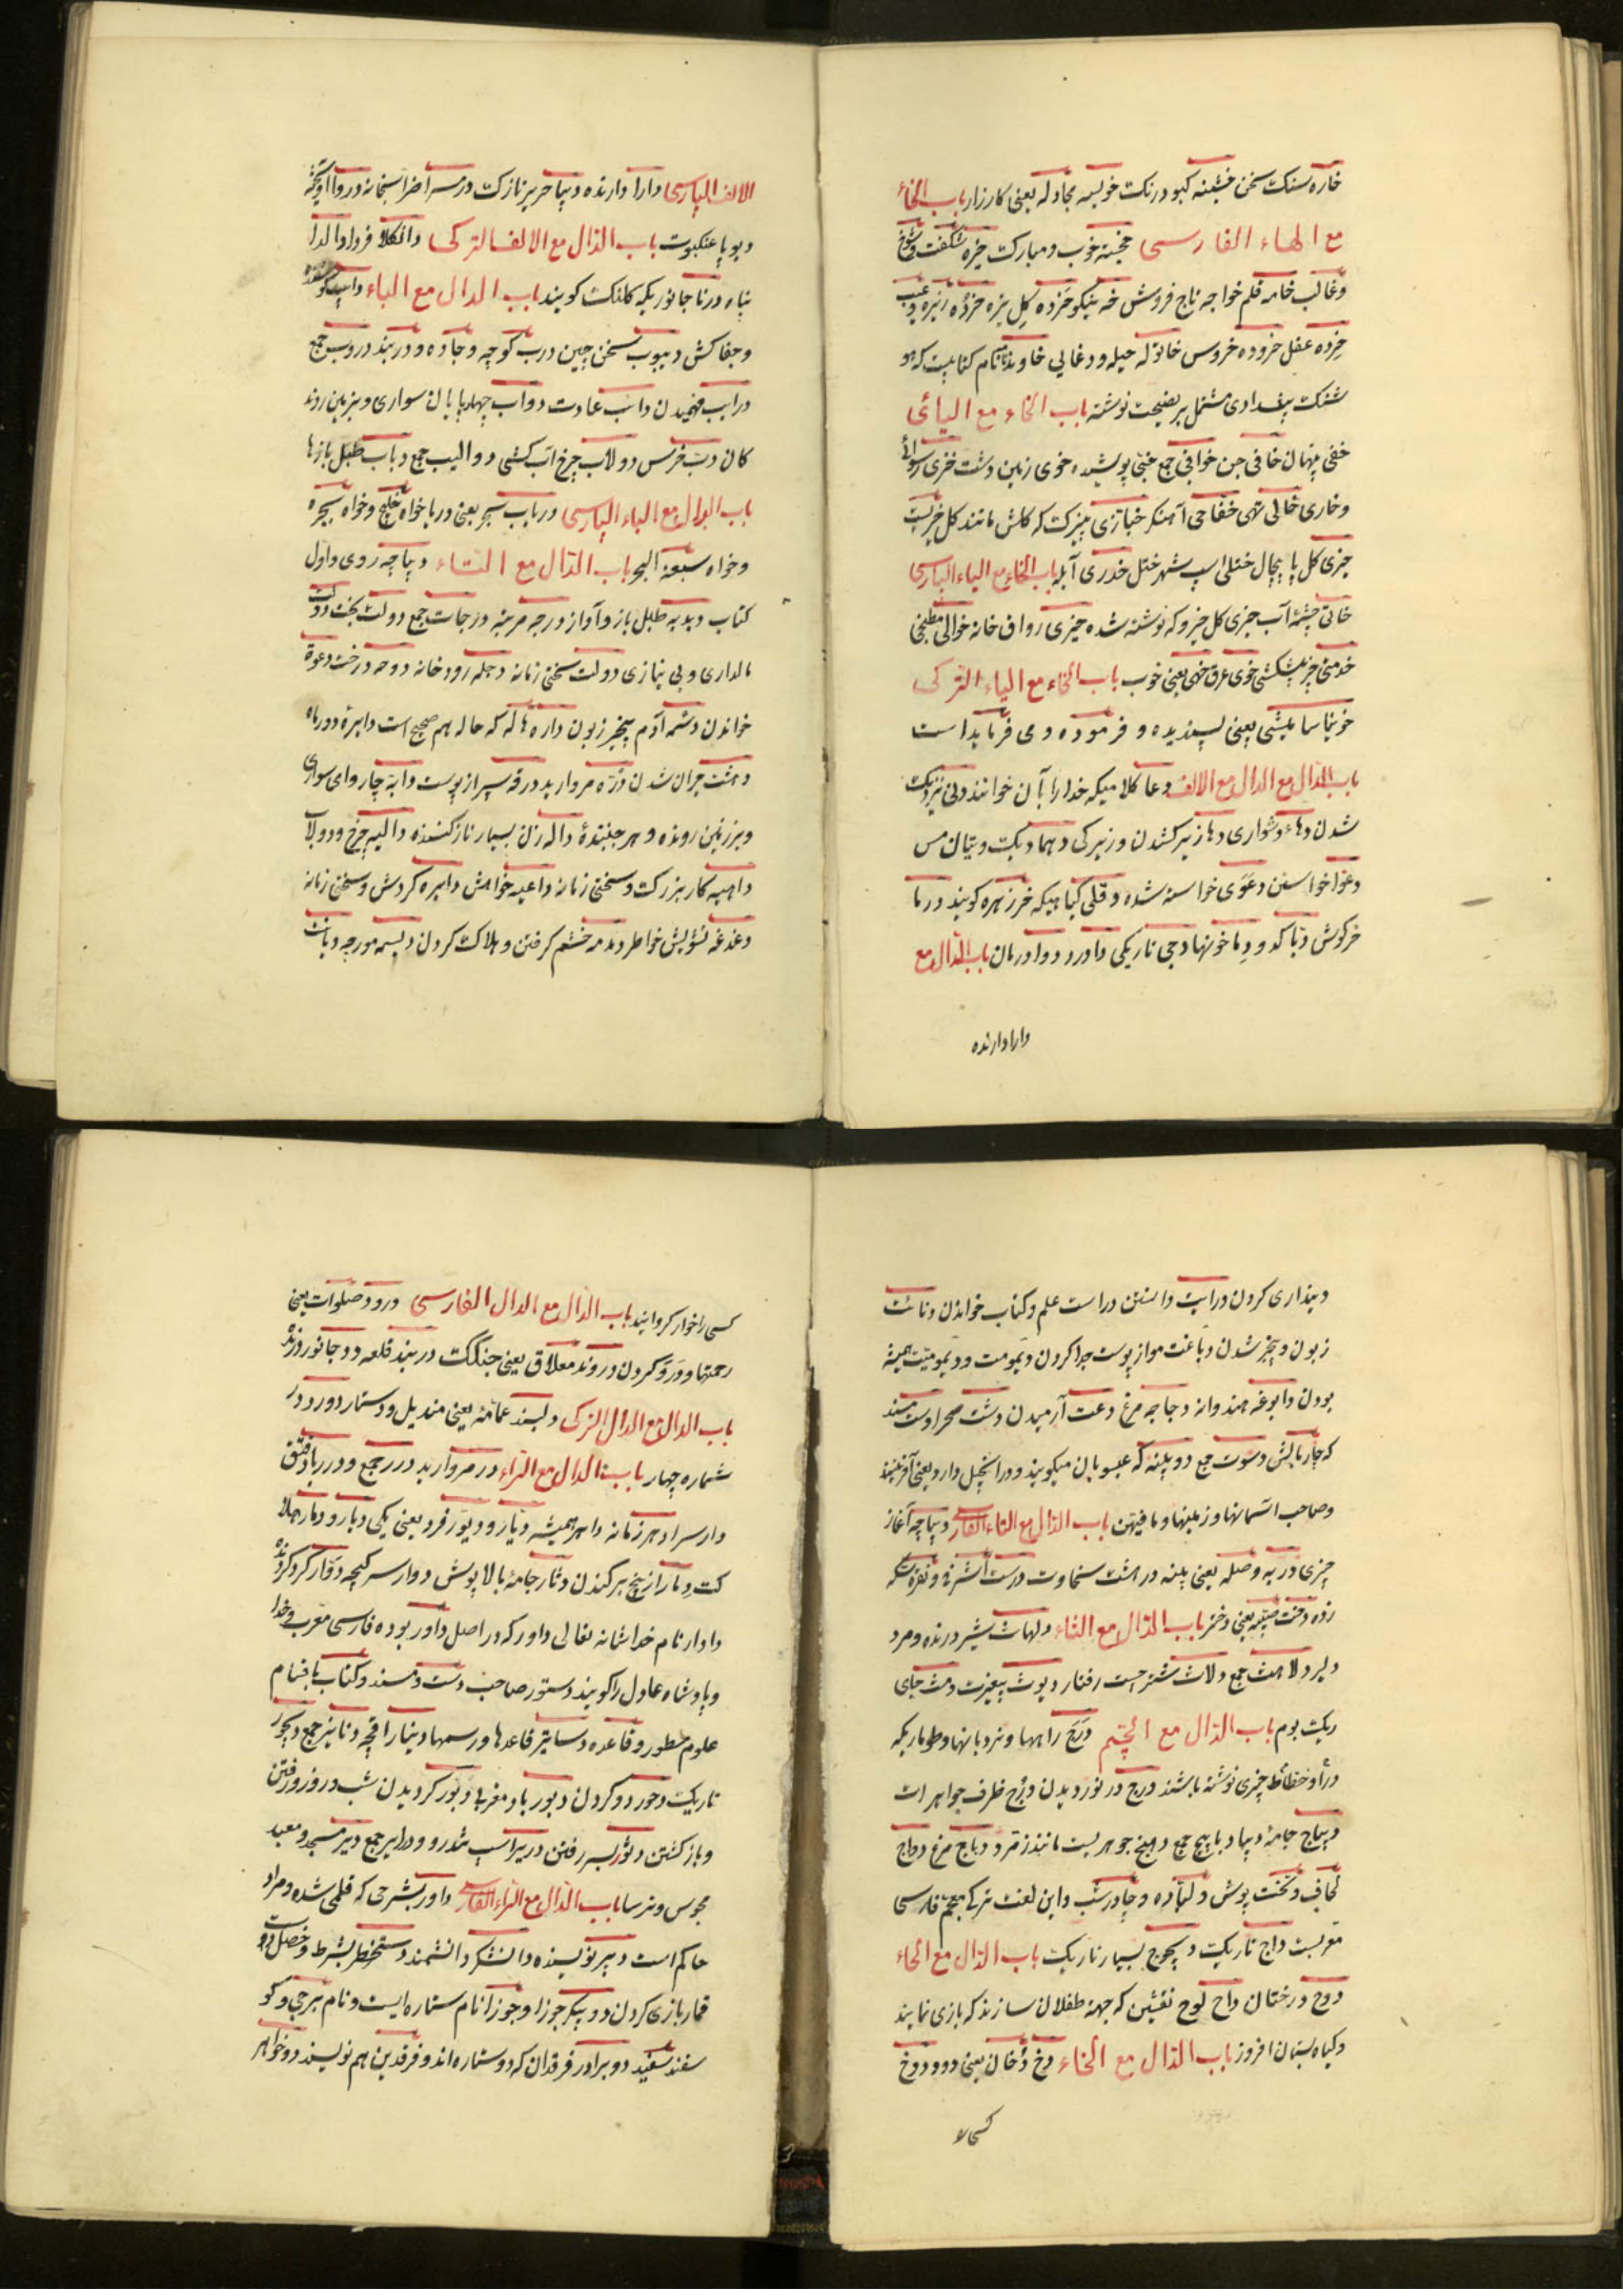 خاره سنک سخن خشینه کبود رنک خویسه مجادله یعنی کارزار باب الخاء
مع الهاء الفارسی خجسته خوب و مبارک خیره شکفت و شوخ
و غالب خامه قلم خواجه تاج فروش خه نیکو خزده کل بزه خرده ریزه و عیب
خرده عقل خروده خروس خاتوله حیله و دغایی خاوندنامه نام کتابیست که
بغدادی مشتمل بر نصیحت نوشته باب الخاء مع الیائی
خفی پنهان خافی جن خوافی جمع خبی پوشیده خوی زمین دشت خزی رسوائی
و خاری خالی تهی خفاجی آهنکر خبازی پنیرک که کلش مانند کل خیریست
خیری کل پاپیچال ختلی اسپ شهر ختل خدری آبله باب الخاء مع الیاء الپارسی
خانی چشمۀ آب خیری کل خیرو که نوشته شده خیری رواق خانه خوالی مطبخی
خدمتی چیز پیشکشی خوی عرق خهی یعنی خوب باب الخاء مع الیاء الترکی
یعنی پسندیده و فرموده و می فرماید است
باب الدال مع الدال مع الالف دعا کلامیکه خدا را بآن خوانند دنی نزدیک
شدن دهاء دشواری دها زیر کشدن و زیرکی دهماء دیک و یتان مس
دعوا خواستن دعوی خواسته شده دفلی کیاهیکه خرزهره کویند درما
خرکوش دبا کدو دما خونها دجی تاریکی داور دوا درمان باب الدال مع
دارا دارنده
الالف الپارسی دارا دارنده دیبا حریر نازک درسرا ضرابخانه دروا آویخته
دیوپا عنکبوت باب الدال مع الالف الترکی دانکلا فردا والدا
پناه درنا جانوریکه کلنک کویند باب الدال مع الباء داب
و جفاکش دبوب سخن چین درب کوچه و جاده و دربند دروب جمع
دراب فهمیدن داب عادت دواب چهارپایان سواری و بزمین روند
کان دب خرس دولاب چرخ آب کشی دوالیب جمع دباب طبل بازها
باب الدال مع الباء الپارسی درباب سحر یعنی دریا خواه خلیج و خواه بحیره
و خواه سبعه البحر باب الدال مع التاء دیباچه روی و اول
کتاب دبدبه طبل باز و آواز درجه مرتبه درجات جمع دولت بخت دولت
مالداری و بی نیازی دولت سختی زمانه دجله رودخانه دوحه درخت دعوة
خواندن دشمه آدم بیخیر زبون داره هاله که حاله هم صحیح است دایرۀ دور ماه
دهشت حیران شدن درّه مروارید درقه سپر از پوست دابّه چاروای سواری
و بر زمین رونده و هر جنبندۀ داله زن بسیار ناز کننده دالیه چرخ و دولاب
داهیه کار بزرک و سختی زمانه داعیه خواهش دایره کردش و سختی زمانه
دغدغه تشویش خاطر دمدمه خشم کرفتن و هلاک کردن دلسمه مورچه دیانت
دینداری کردن درایت دانستن دراست علم و کتاب خواندن دنائت
زبون و بیخیر شدن دباغت مو از پوست جدا کردن دیمومت و دیمومیت همیشه
بودن دابوغه هندوانه دجاجه مرغ دعت آرمیدن دشت صحرا دست مسند
که چاربالش دسوت جمع دوپینه که عیسویان میکویند و در انجیل دارد یعنی آفریننده
و صاحب آسمانها و زمینها و مافیهن باب الدال مع التاء الفارسی دیباچه آغاز
چیزی دربه وصله یعنی پینه درهشت سخاوت درست اشرفی و نقره سکه
زده دخت صبیه یعنی دختر باب الدال مع الثاء دلهاث شیر درنده و مرد
دلیر دلاهث جمع دلاث شتر جست رفتار دیوث بیغیرت دمث جای
ریک بوم باب الدال مع الجیم درج راهها و نردبانها و طوماریکه
در او خطائط چیزی نوشته باشند درج در نوردیدن درج ظرف جواهرات
دیباج جامۀ دیبا دبابیج جمع دهنج جوهریست مانند زمرد دجاج مرغ دواج
لحاف و تخت پوش و لباده و چادرشب و این لغت ترکی بجیم فارسی
معربست داج تاریک دیجوج بسیار تاریک باب الدال مع الحاء
دوح درختان داح لوح نقشین که جهة طفلان سازند که بازی نمایند
و کیاه بستان افروز باب الدال مع الخاء دخ دخان یعنی دود دوخ
کسی را
کسی را خوار کردانید باب الدال مع الدال الفارسی درود صلوات یعنی
رحمتها و درو کردن دروند معلاق یعنی چنکک دربند قلعه دد جانور درنده
باب الدال مع الدال الترکی دلبند عمامه یعنی مندیل و دستار دورد در
شماره چهار باب الدال مع الراء در مروارید درر جمع و درر باد
دار سرا دهر زمانه داهر همیشه دیار و دیور فرد یعنی یکی دبار و دمار هلا
کت دمار از بیخ بر کندن دثار جامۀ بالاپوش دوار سر کیجه دوار کرد کردنده
دادار نام خدا شانه تعالی داور که در اصل داور بوده فارسی معرب و خدا
و پادشاه عادل را کویند دستور صاحب دست و مسند و کتاب باقسام
علوم مسطور و قاعده دساتیر قاعدها و رسمها دینار اقچه دنانیر جمع دیجور
تاریک دحور دور کردن دبور باد مغربی دبور کردیدن شب در روز و رفتن
و باز کشتن دثور بسر رفتن دریر اسپ تندرو و درایر جمع دیر مسجد و معبد
مجوس و ترسا باب الدال مع الراء الفارسی داور بشرحی که قلمی شده و مراد
حاکم است دبیر نویسنده دانشکر دانشمند دستخط بشرط و خصل
قمار بازی کردن دوپیکر جوزا و جوزا نام ستاره ایست و نام برجی و کو
سفند سفید دو برادر فرقدان که دو ستاره اند و فرقدین هم نویسند دو خواهر